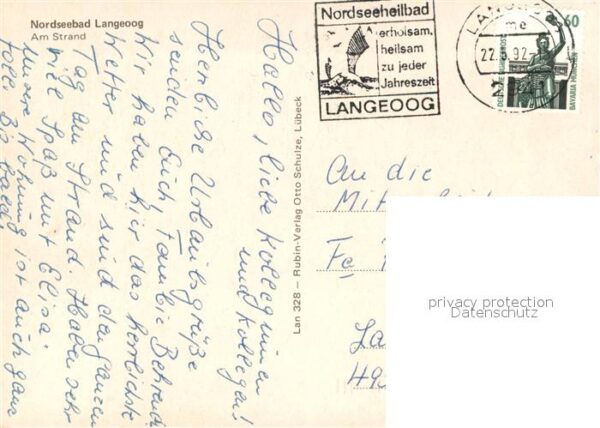 Nordseebad Langeoog
Am Strand
Hallo, liebe Kolleginnen
und Kollegen!
Herzliche Urlaubsgrüße
senden Euch Fam.
Wir haben hier das herrlichste
Wetter und sind den ganzen
Tag am Strand. Haben sehr
viel Spaß mit Elisa.
Unsere Wohnung ist auch ganz
toll. Bis bald
Lan 328 – Rubin-Verlag Otto Schulze, Lübeck
Nordseeheilbad
erholsam,
heilsam
zu jeder
Jahreszeit
LANGEOOG
me
60
DEUTSCHE BUNDESPOST
BAVARIA MÜNCHEN
An die
privacy protection
Datenschutz